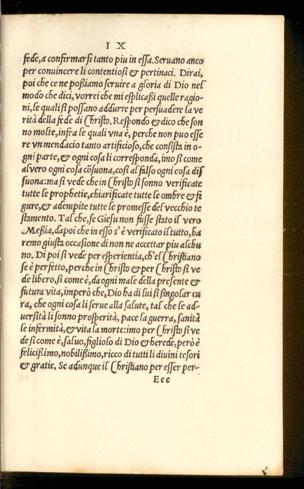 I X
fede, a confirmarsi tanto piu in essa. Seruano anco
per conuincere li contentiosi & pertinaci. Dirai,
poi che ce ne poßiamo seruire a gloria di Dio nel
modo che dici, vorrei che mi esplicaßi quelle ragio
ni, le quali si possano addurre per persuadere la ve
rità della fede di Christo. Respondo & dico che son
no molte, infra le quali vna è, perche non puo esse
re vn mendacio tanto artificioso, che consista in o
gni parte, & ogni cosa li corresponda, imo si come
al vero ogni cosa cōsuona, cosi al falso ogni cosa dis
suona: ma si vede che in Christo si sonno verificate
tutte le prophetie, chiarificate tutte le ombre & fi
gure, & adempite tutte le promesse del vecchio te
stamento. Tal che, se Giesu non fusse stato il vero
Meßia, dapoi che in esso s'è verificato il tutto, ha
remo giusta occasione di non ne accettar piu alchu
no. Di poi si vede per esperientia, ch'el Christiano
se è perfetto, perche in Christo & per Christo si ve
de libero, si come è, da ogni male della presente &
futura vita, imperò che, Dio ha di lui si singolar cu
ra, che ogni cosa li serue alla salute, tal che le ad-
uersità li sonno prosperità, pace la guerra, sanità
le infermità, & vita la morte: imo per Christo si ve
de si come è, saluo, figliolo di Dio & herede, però è
felicißimo, nobilißimo, ricco di tutti li diuini tesori
& gratie. Se adunque il Christiano per esser per-
Ecc